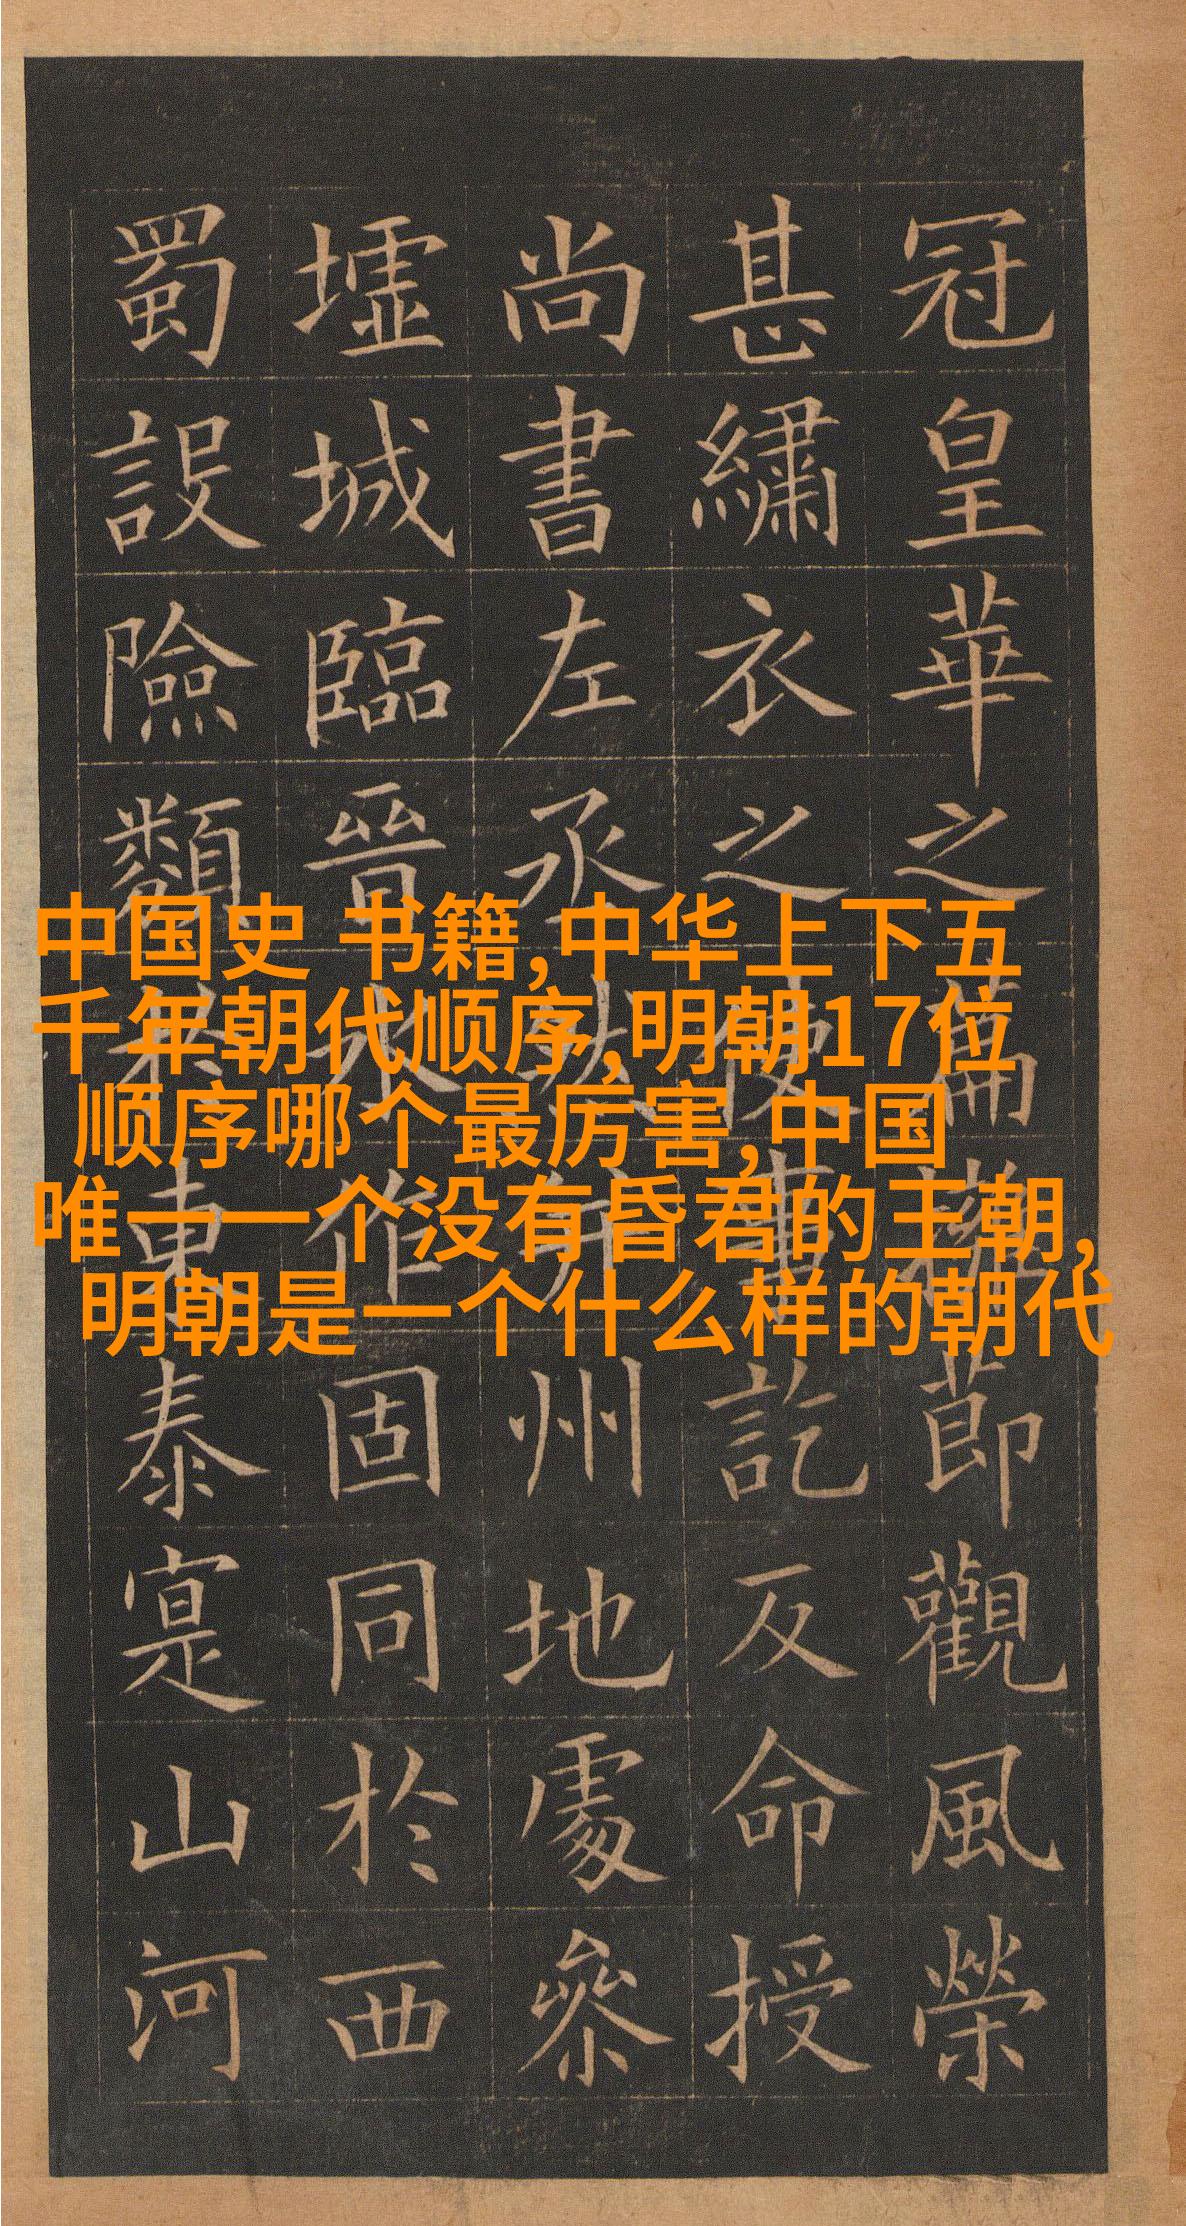 冠皇華之篇節觀風榮
甚繡衣之使事訖反命授
尚書左丞州地處參
墟城臨晉水作固同於西
蜀設險類東泰寔山河
中国史 书籍,中华上下五
千年朝代顺序,明朝17位
顺序哪个最厉害,中国
唯一一个没有昏君的王朝,
明朝是一个什么样的朝代